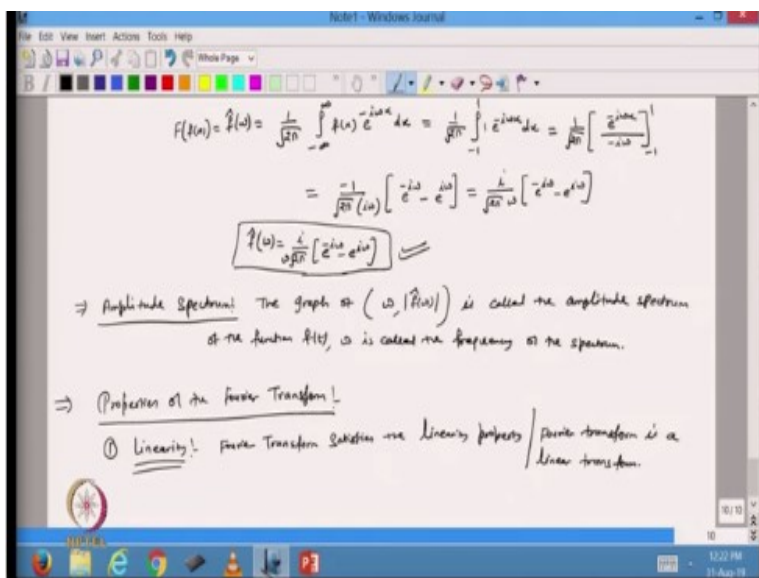 Note1 - Windows Journal
File Edit View Insert Actions Tools Help
Whole Page
F(f(x)) = f̂(ω) = 1/√2π ∫_{-∞}^{∞} f(x) e^{-iωx} dx = 1/√2π ∫_{-1}^{1} 1 e^{-iωx} dx = 1/√2π [e^{-iωx}/-iω]_{-1}^{1}
= -1/√2π (iω) [e^{-iω} - e^{iω}] = i/√2π ω [e^{-iω} - e^{iω}]
f̂(ω) = i/ω√2π [e^{-iω} - e^{iω}]
⇒ Amplitude Spectrum! The graph of (ω, |f̂(ω)|) is called the amplitude spectrum
of the function f(t), ω is called the frequency of the spectrum.
⇒ Properties of the Fourier Transform!-
① Linearity!- Fourier Transform Satisfies the linearity property / Fourier transform is a
linear transform.
NPTEL
10/10
10
12:22 PM
31-Aug-19